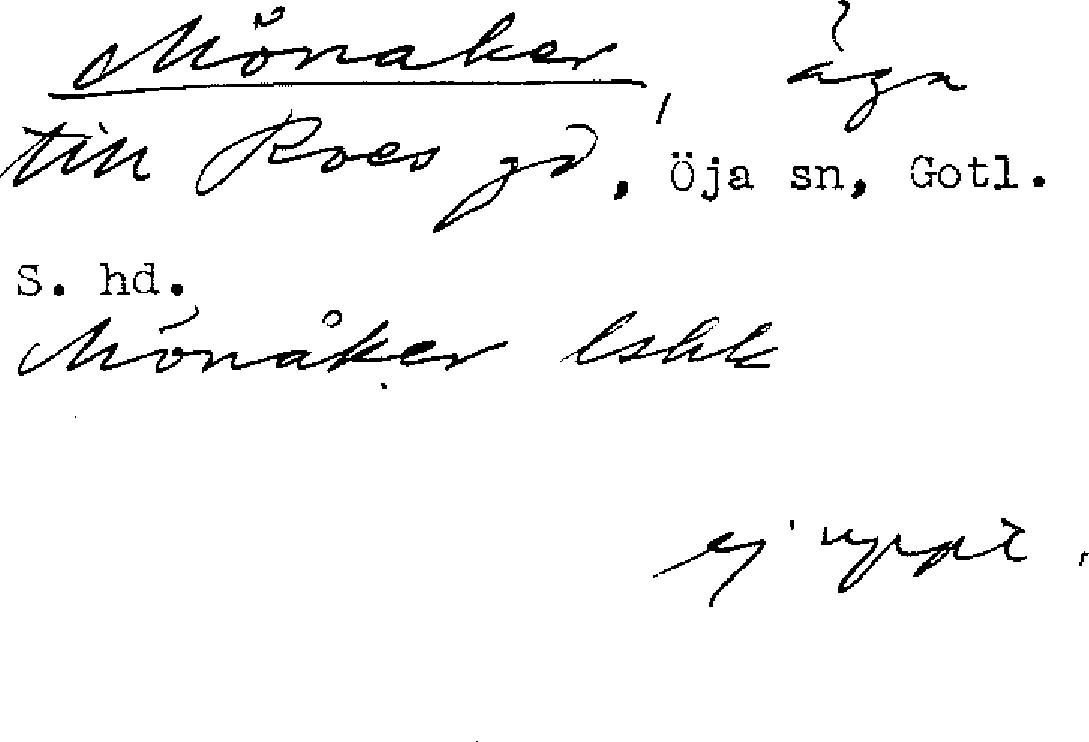 Mönaker, äga
till Roes gd, Öja sn, Gotl.
S. hd.
Mönåker lskk
ej uppt.